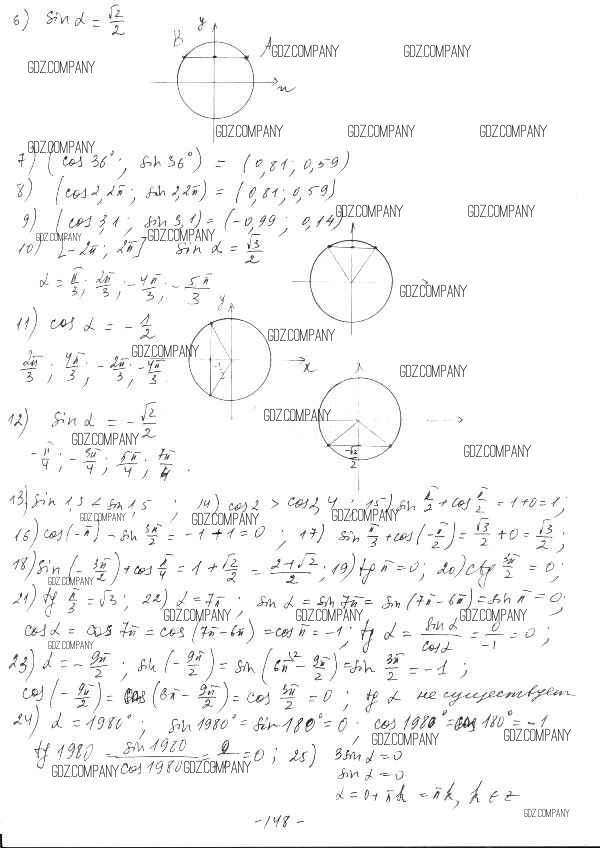 6) sin α = √2/2
y
B
A
GDZ.COMPANY GDZ.COMPANY
GDZ.COMPANY
x
GDZ.COMPANY GDZ.COMPANY GDZ.COMPANY
GDZ.COMPANY
7) (cos 36°; sin 36°) = (0,81; 0,59)
8) (cos 2,2π; sin 2,2π) = (0,81; 0,59)
9) (cos 3,1; sin 3,1) = (-0,99; 0,14)
GDZ.COMPANY GDZ.COMPANY
GDZ.COMPANY GDZ.COMPANY
10) [-2π; 2π] sin α = √3/2
α = π/3; 2π/3; -4π/3; -5π/3
GDZ.COMPANY
y
11) cos α = -1/2
GDZ.COMPANY
GDZ.COMPANY
2π/3; 4π/3; -2π/3; -4π/3
-1/2
x
GDZ.COMPANY
12) sin α = -√2/2
GDZ.COMPANY
GDZ.COMPANY
-√2/2
GDZ.COMPANY
-π/4; -3π/4; 5π/4; 7π/4.
13) sin 1,3 < sin 1,5; 14) cos 2 > cos 2,4; 15) sin π/2 + cos π/2 = 1+0=1;
GDZ.COMPANY GDZ.COMPANY GDZ.COMPANY
16) cos(-π) - sin 3π/2 = -1+1=0; 17) sin π/3 + cos(-π/2) = √3/2 + 0 = √3/2;
18) sin(-3π/2) + cos π/4 = 1 + √2/2 = (2+√2)/2; 19) tg π = 0; 20) ctg 3π/2 = 0;
GDZ.COMPANY
21) tg π/3 = √3; 22) α = 7π; sin α = sin 7π = sin(7π-6π) = sin π = 0;
GDZ.COMPANY GDZ.COMPANY GDZ.COMPANY GDZ.COMPANY
cos α = cos 7π = cos(7π-6π) = cos π = -1; tg α = sin α/cos α = 0/-1 = 0;
GDZ.COMPANY
23) α = -9π/2; sin(-9π/2) = sin(6π - 9π/2) = sin 3π/2 = -1;
GDZ.COMPANY GDZ.COMPANY GDZ.COMPANY
cos(-9π/2) = cos(6π - 9π/2) = cos 3π/2 = 0; tg α не существует
24) α = 1980°; sin 1980° = sin 180° = 0; cos 1980° = cos 180° = -1
GDZ.COMPANY GDZ.COMPANY
tg 1980 = sin 1980/cos 1980 = 0/-1 = 0; 25) 3 sin α = 0
GDZ.COMPANY GDZ.COMPANY
sin α = 0
α = 0 + πk = πk, k ∈ z
GDZ.COMPANY
-148-